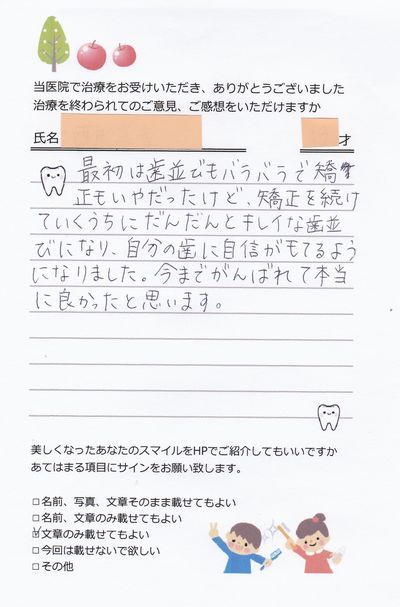 当医院で治療をお受けいただき、ありがとうございました
治療を終わられてのご意見、ご感想をいただけますか
氏名
才
最初は歯並びもバラバラで矯
正もいやだったけど、矯正を続け
ていくうちにだんだんとキレイな歯並
びになり、自分の歯に自信がモてるよう
になりました。今までがんばれて本当
に良かったと思います。
美しくなったあなたのスマイルをHPでご紹介してもいいですか
あてはまる項目にサインをお願い致します。
□名前、写真、文章そのまま載せてもよい
□名前、文章のみ載せてもよい
☑文章のみ載せてもよい
□今回は載せないで欲しい
□その他